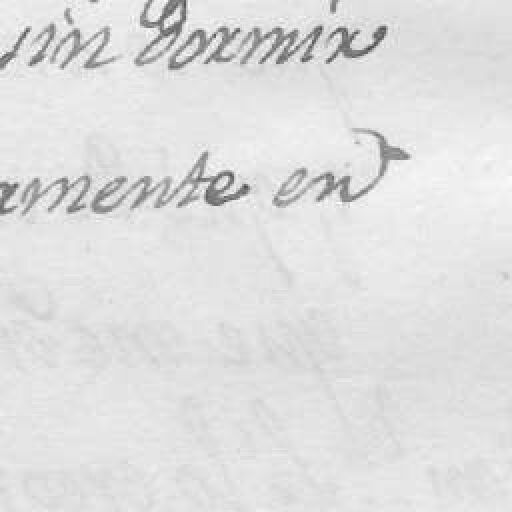 sin dormir
amente en